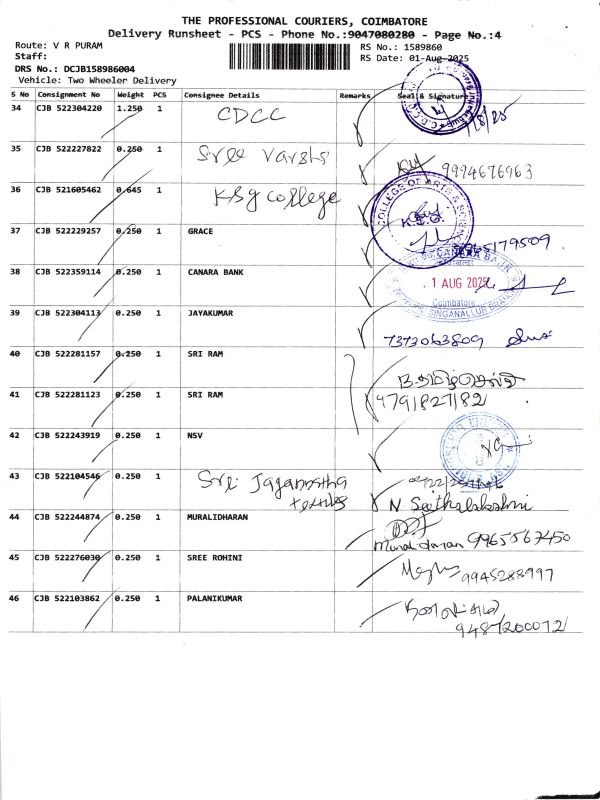 THE PROFESSIONAL COURIERS, COIMBATORE
Delivery Runsheet - PCS - Phone No.:9047080280 - Page No.:4
Route: V R PURAM RS No.: 1589860
Staff: RS Date: 01-Aug-2025
DRS No.: DCJB158986004
Vehicle: Two Wheeler Delivery
S No Consignment No Weight PCS Consignee Details Remarks Seal & Signature
34 CJB 522304220 1.250 1 CDCC
35 CJB 522227822 0.250 1 Sree Varshs 9994676963
36 CJB 521605462 0.645 1 KSG college COLLEGE OF ARTS & SCIENCE K.S.G.
37 CJB 522229257 0.250 1 GRACE
38 CJB 522359114 0.250 1 CANARA BANK CANARA BANK 1 AUG 2025 Coimbatore SINGANALLUR BRANCH
39 CJB 522304113 0.250 1 JAYAKUMAR 7373063809
40 CJB 522281157 0.250 1 SRI RAM
41 CJB 522281231 0.250 1 SRI RAM 4791827182
42 CJB 522243919 0.250 1 NSV
43 CJB 522104546 0.250 1 Sree Jagannatha textiles N Seethalakshmi
44 CJB 522244874 0.250 1 MURALIDHARAN 9965567450
45 CJB 522276030 0.250 1 SREE ROHINI 9945288997
46 CJB 522103862 0.250 1 PALANIKUMAR
9487200072